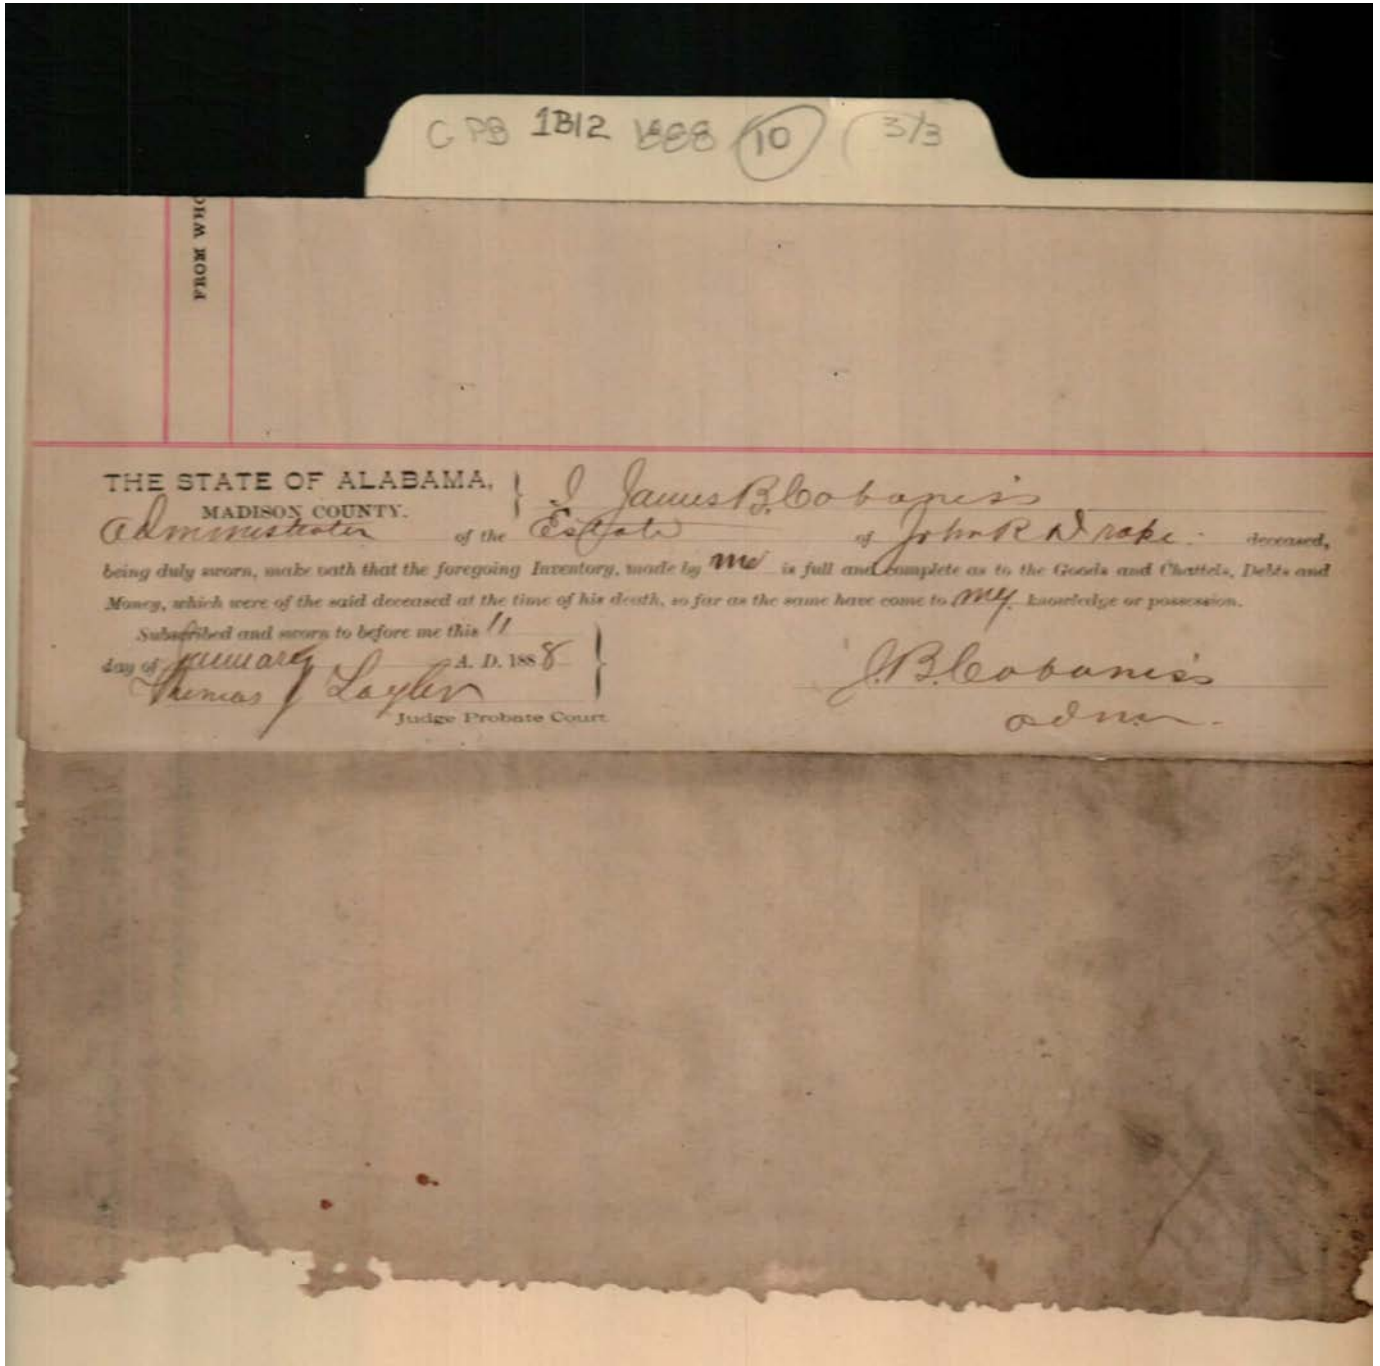 C PB 1B12 1888 10 3/3
FROM WHO
THE STATE OF ALABAMA,
MADISON COUNTY.
I James B. Cabaniss
Administrator of the Estate of John R Drake. deceased,
being duly sworn, make oath that the foregoing Inventory, made by me is full and complete as to the Goods and Chattels, Debts and
Money, which were of the said deceased at the time of his death, so far as the same have come to my knowledge or possession.
Subscribed and sworn to before me this 11
day of January A. D. 1888
Thomas J Taylor
Judge Probate Court
J. B. Cabaniss
admr.